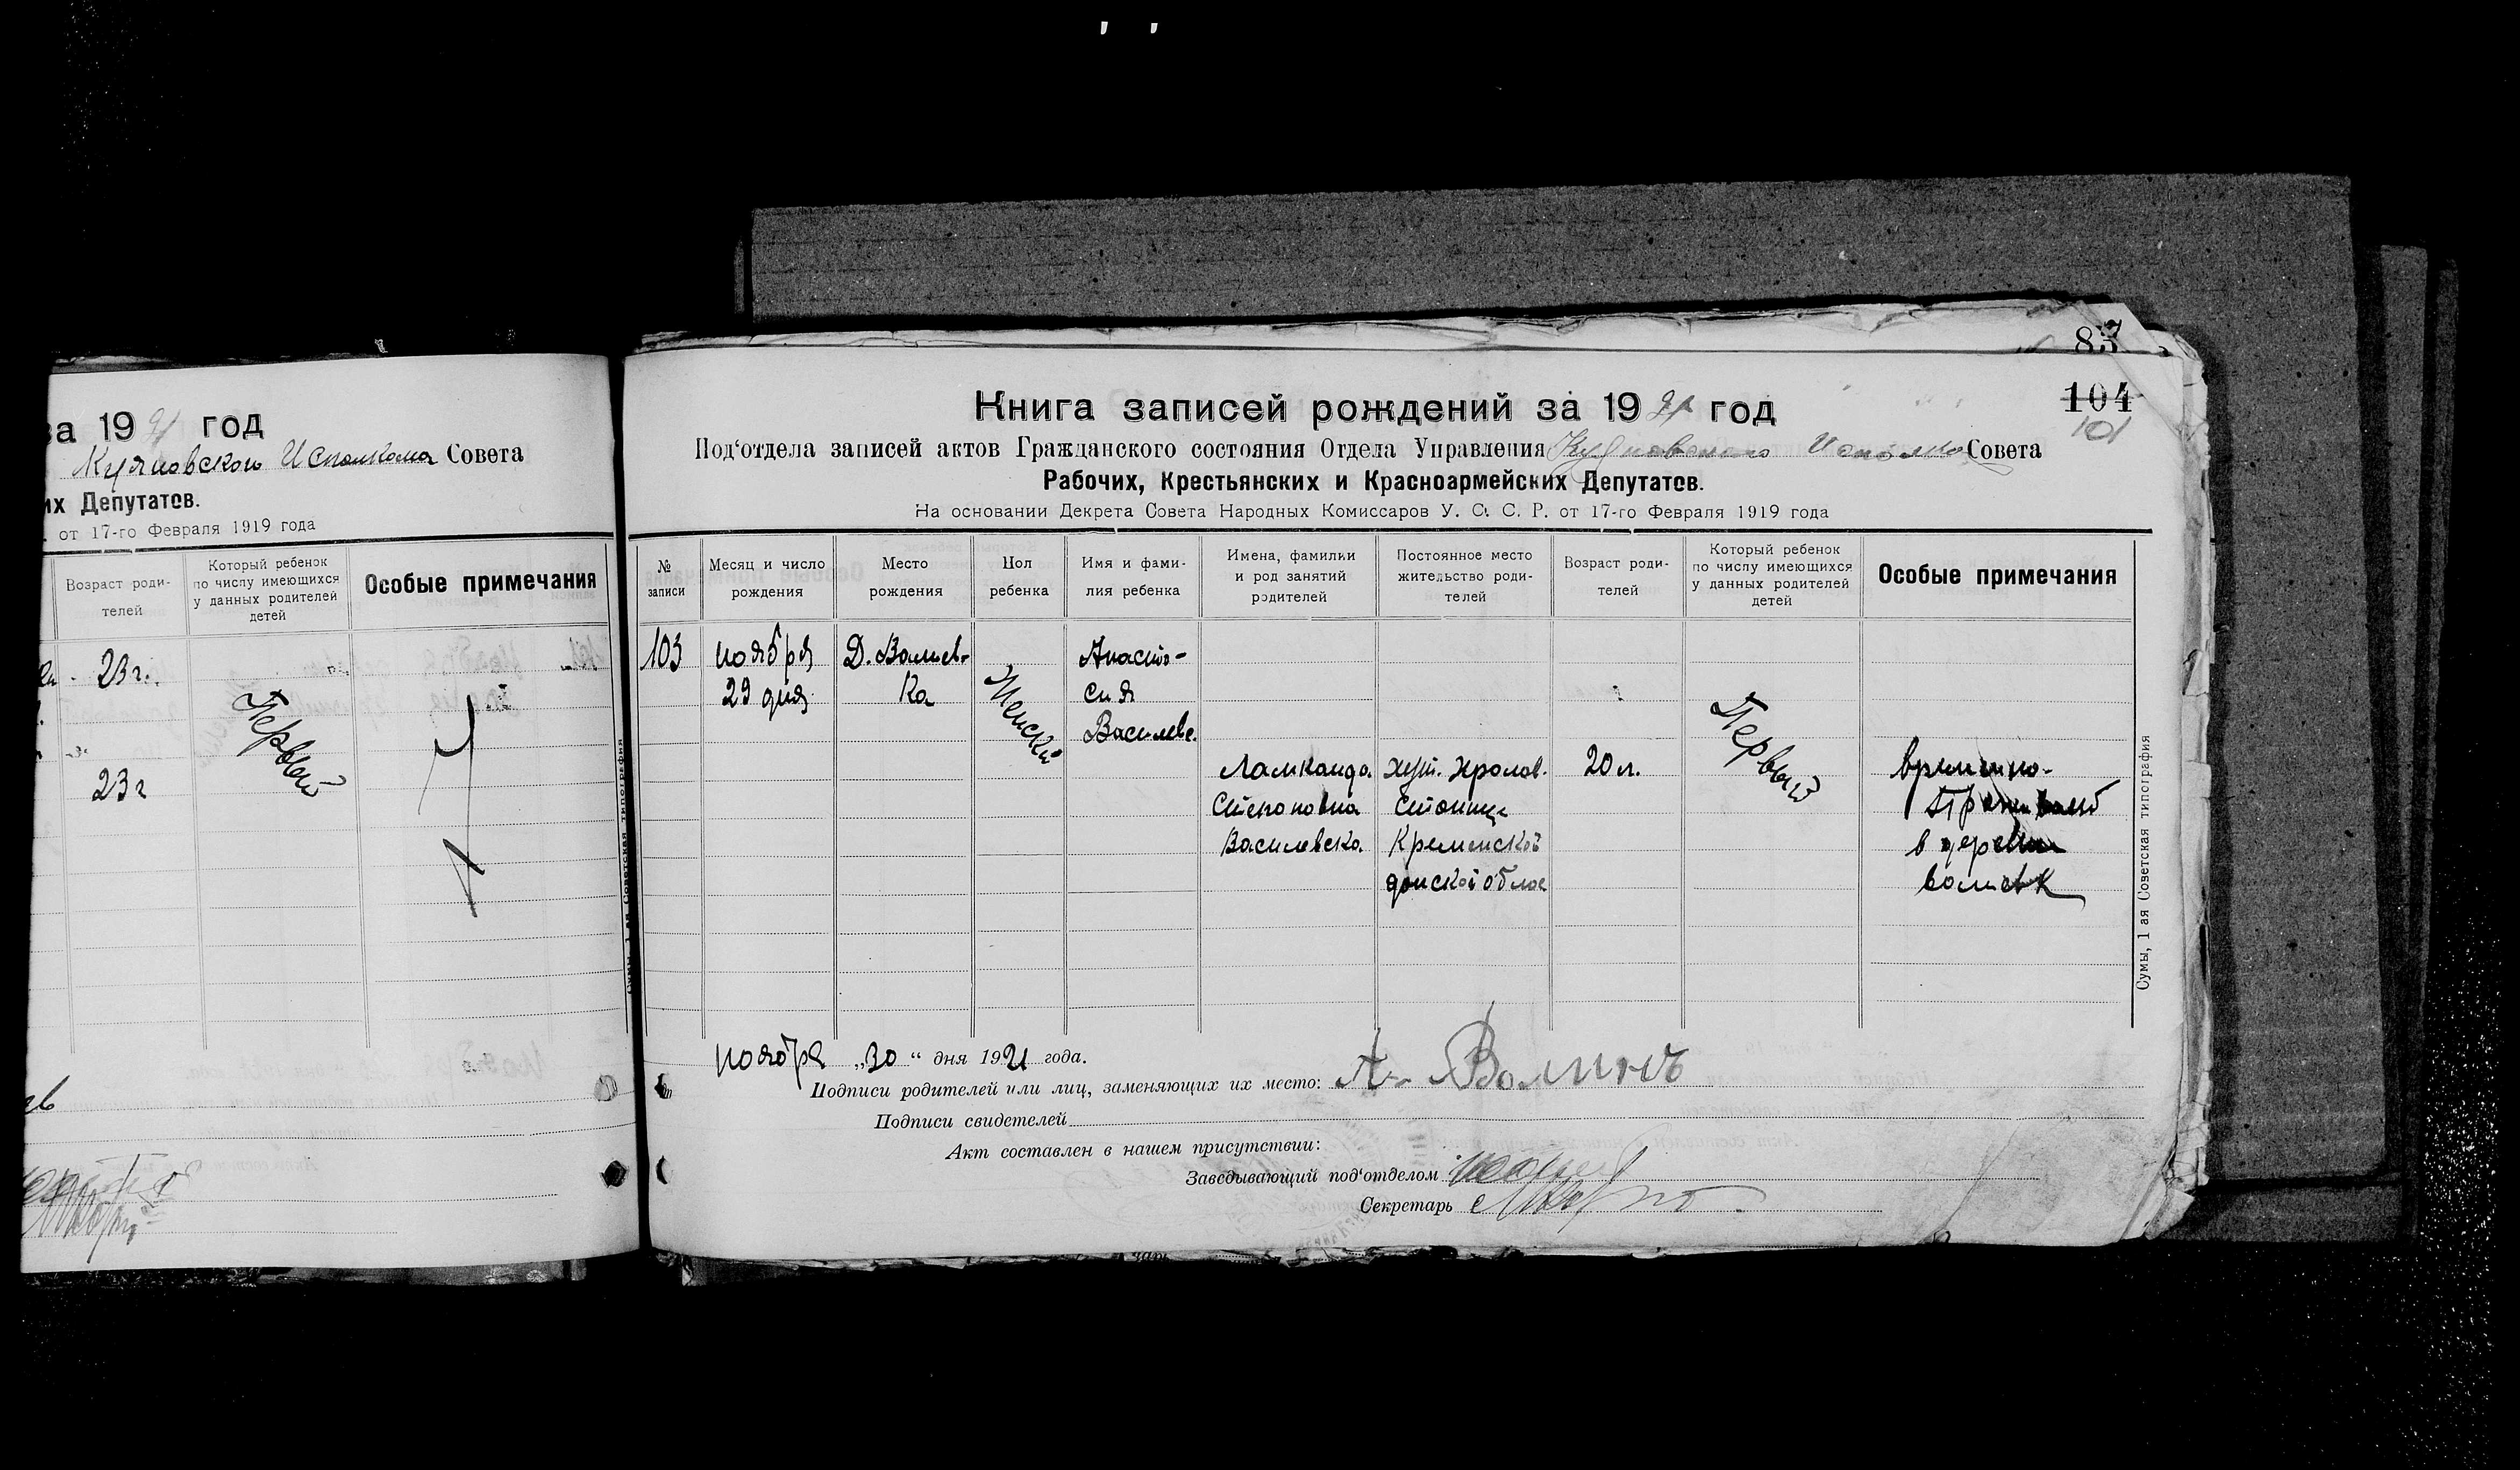 за 1921 год
Куяновского Исполкома Совета
их Депутатов.
. от 17-го Февраля 1919 года
Возраст роди-
телей
Который ребенок
по числу имеющихся
у данных родителей
детей
Особые примечания
23 г.
Первый
23 г
83
Книга записей рождений за 1921 год
104
101
Под‘отдела записей актов Гражданского состояния Отдела Управления Куяновского Исполко Совета
Рабочих, Крестьянских и Красноармейских Депутатов.
На основании Декрета Совета Народных Комиссаров У. С. С. Р. от 17-го Февраля 1919 года
№
записи
Месяц и число
рождения
Место
рождения
Пол
ребенка
Имя и фами-
лия ребенка
Имена, фамилии
и род занятий
родителей
Постоянное место
жительство роди-
телей
Возраст роди-
телей
Который ребенок
по числу имеющихся
у данных родителей
детей
Особые примечания
103
ноября
29 дня
Д.
ка
Женский
Анаста-
сия
Василевс.
Степановна
Василевска.
хут.
Кременской
донской облас
20 л.
Первый
временно-
в деревни
ноября „30“ дня 1921 года.
Подписи родителей или лиц, заменяющих их место: А.
Подписи свидетелей
Акт составлен в нашем присутствии:
Заведывающий под‘отделом
Секретарь
Сумы, 1 ая Советская типография